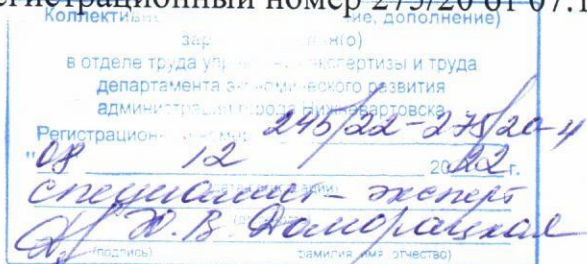 регистрационный номер 275/20 от 07.1
Коллективн ие, дополнение)
зар н(о)
в отделе труда упр экспертизы и труда
департамента экономического развития
администрации города Нижневартовска
Регистрацион 245/22-275/20-4
"08 12 2022 г.
специалист-эксперт
Ю.В. Доморацкая
(подпись) фамилия, имя, отчество)